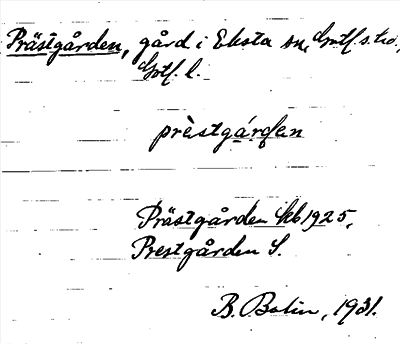 Prästgården, gård i Eksta sn, Gotl. s. hd.,
Gotl. l.
prèstgá̱rdan
Prästgården Skb 1925,
Prestgården S.
B. Bolin, 1931.